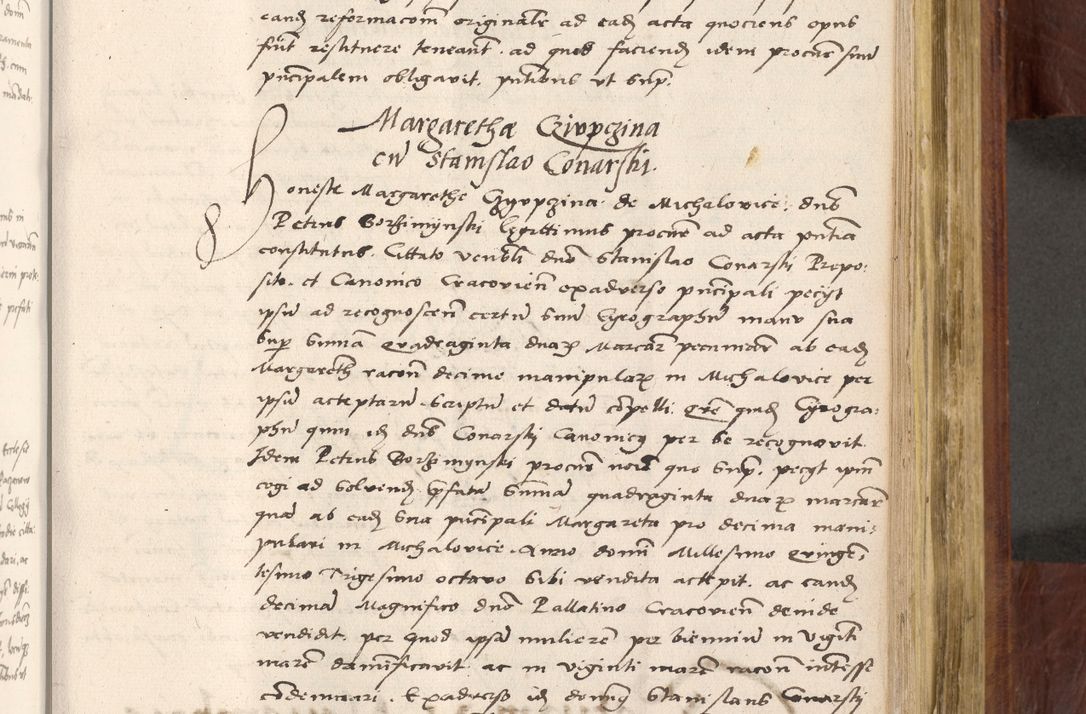 eandē reformacoēm originale ad eadē acta quociens opus
fūit restituere teneant. ad quod faciendū idem procur̄ suū
pn̄cipalem obligavit. pn̄tibus ut sup̄.
Margaretha Czipczina
cū Stanislao Conarski.
Honeste Margarethe Czypczina de Michalovice, dn̄s
Petrus Borzimynski legittimus procur̄ ad acta pn̄tia
constitutus. Cittato ven̄bli dn̄o Stanislao Conarski Prepo:
sito, et Canonico Cracovien̄ exadverso pn̄cipali pecijt
ipsū ad recognoscen̄ certū suū Cyrographū manu sua
sup̄ sum̄a Quadraginta duaꝝ Marcar̄ pecuniar̄ ab eadē
Margareth̄ racon̄ decime manipulaꝝ in Michalovice per
ipsū acceptarū Scriptū et datū cōpelli. Qd̄ quidē Cyrogra:
phū quū idē dn̄s Conarskj Canonicꝯ per se recognovit.
Idem Petrus Borzimynski procur̄ noīe quo sup̄. pecijt ipm̄
cogi ad solvendū p̄fatā sum̄ā quadraginta duaꝝ marcar̄
quā ab eadē sua pn̄cipali Margareta pro decima mani:
pulari in Michalovice. Anno domi Millesimo Quingen̄:
tesimo Trigesimo octavo sibi vendita accepit, ac eandē
decimā Magnifico dn̄o Pallatino Cracovien̄ deinde
vendidit, per quod ipsā mulierem per bienniū in viginti
marcis damnificavit, ac in viginti marcis racon̄ interesse
condemnari. Exadverso idē dominꝯ Stanislaus Conarskj